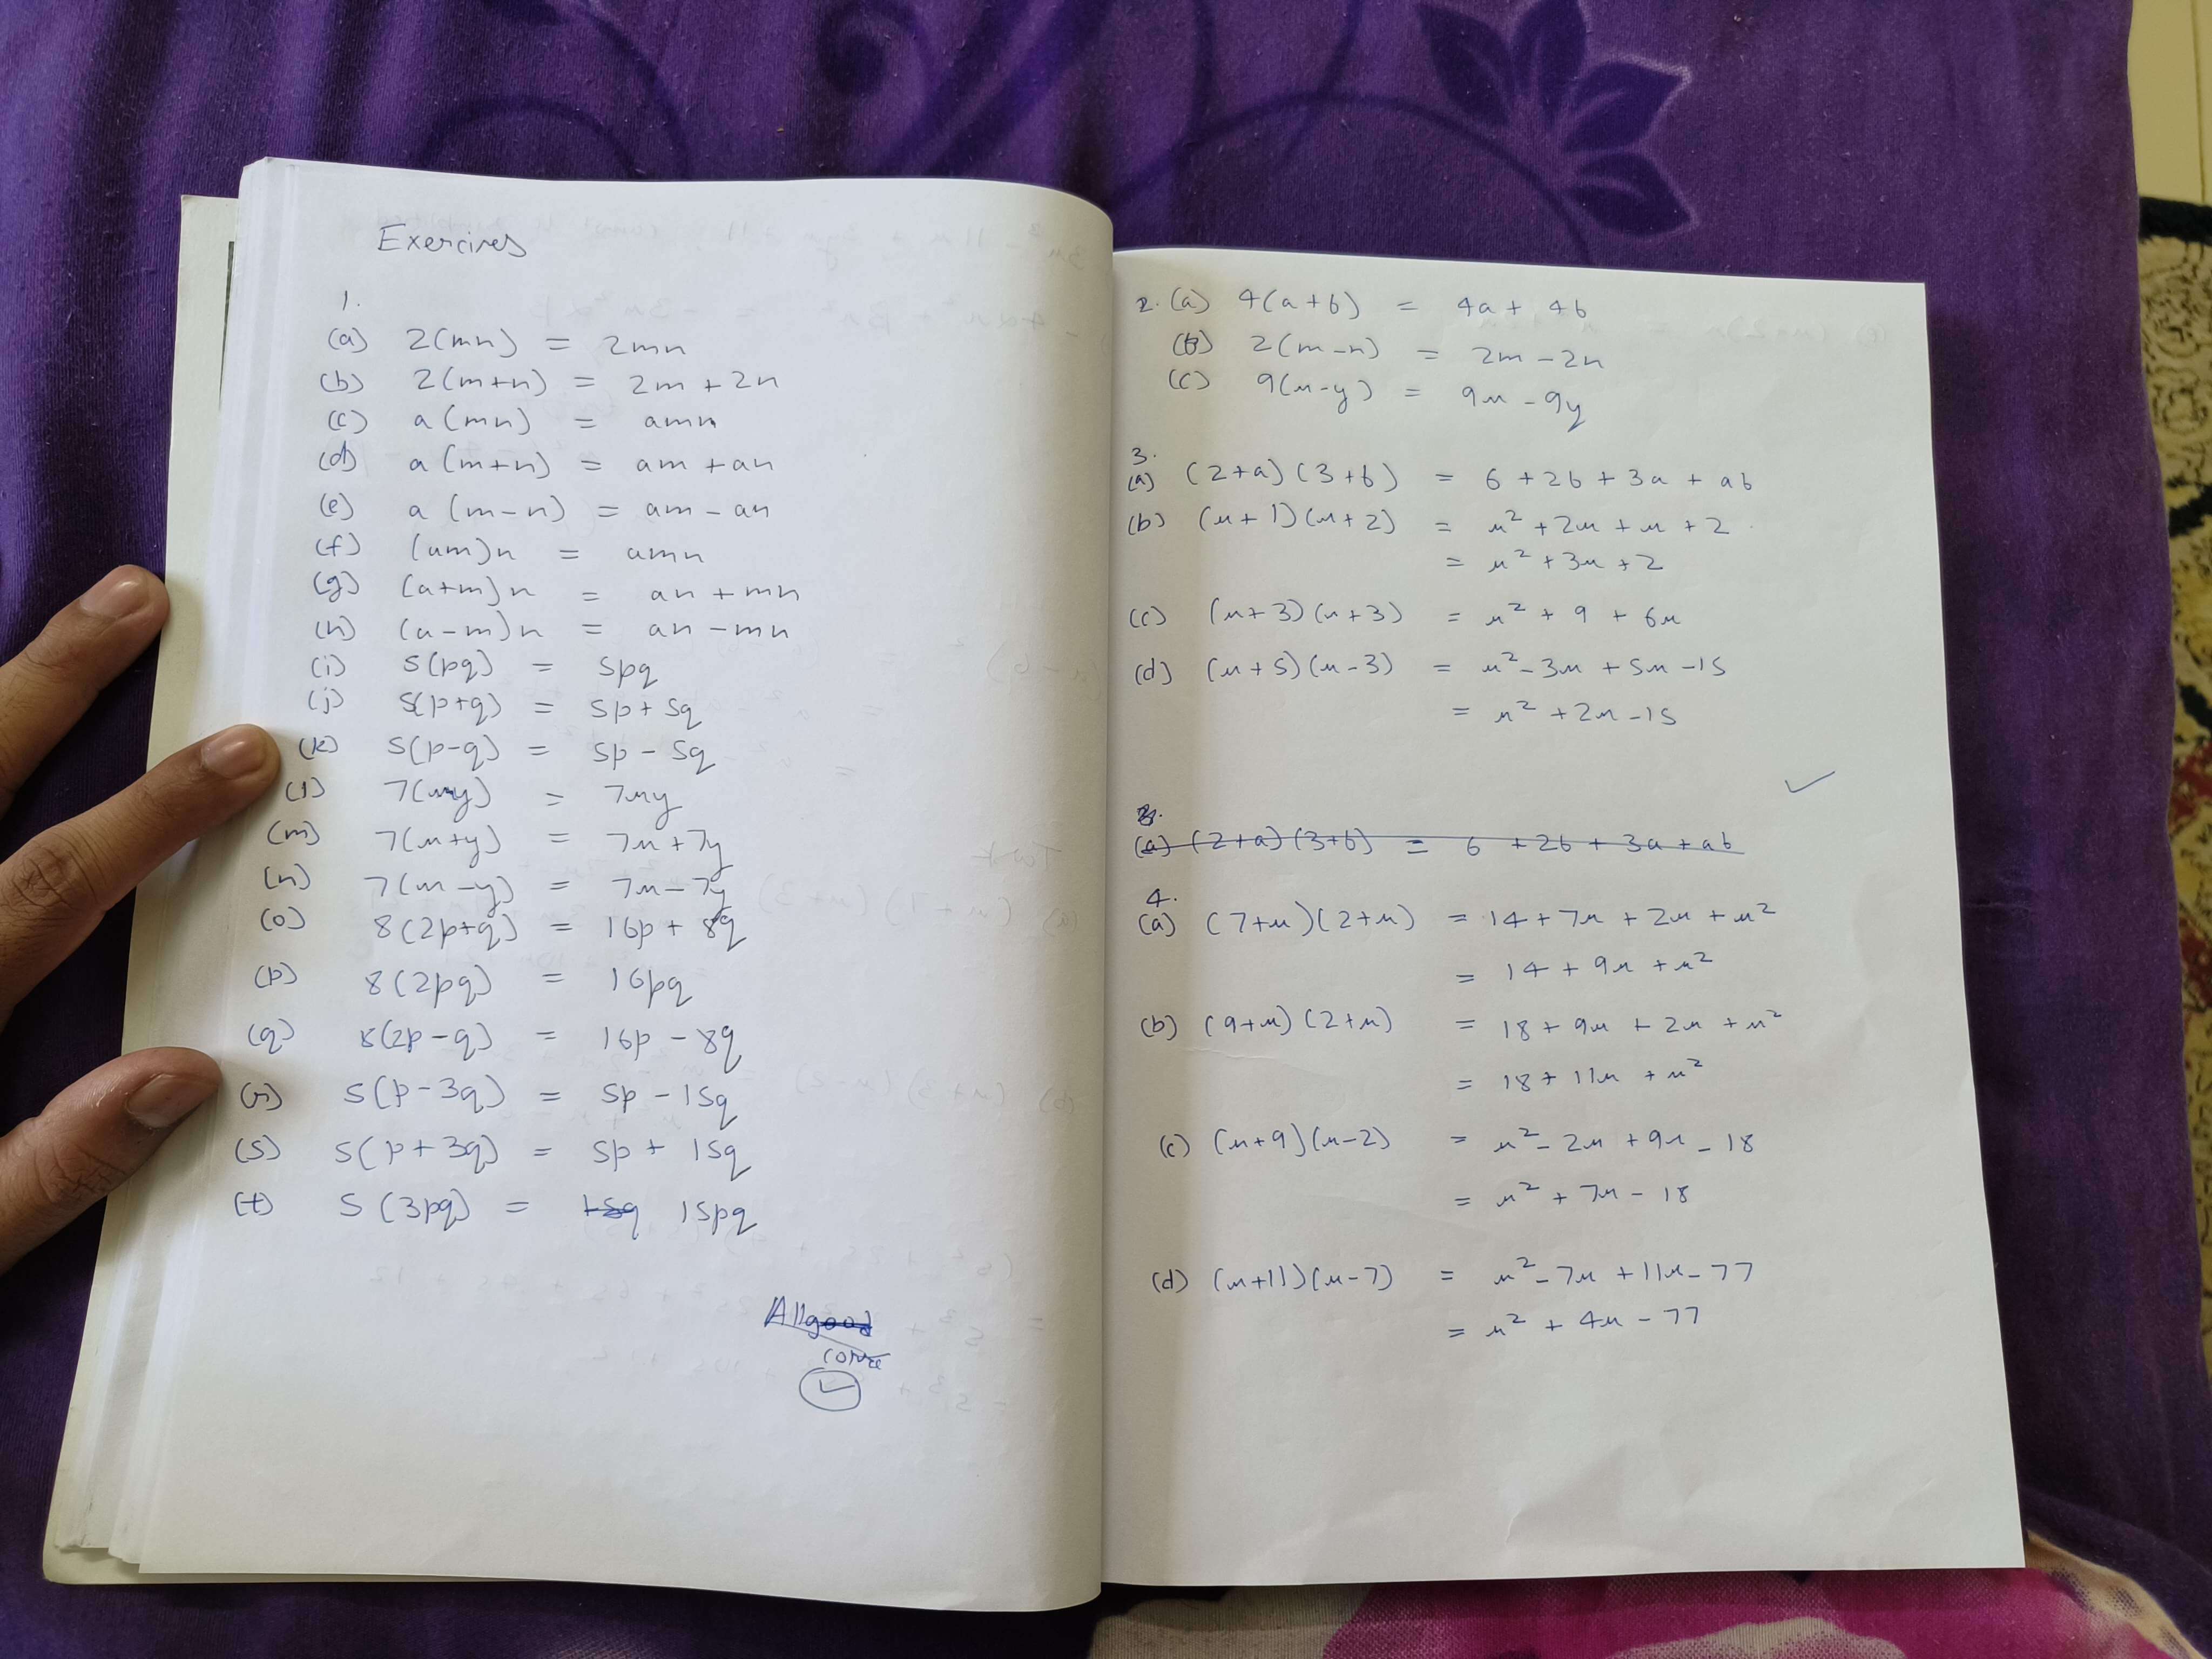 Exercises
1.
(a) 2(mn) = 2mn
(b) 2(m+n) = 2m + 2n
(c) a(mn) = amn
(d) a(m+n) = am + an
(e) a(m-n) = am - an
(f) (am)n = amn
(g) (a+m)n = an + mn
(h) (a-m)n = an - mn
(i) 5(pq) = 5pq
(j) 5(p+q) = 5p + 5q
(k) 5(p-q) = 5p - 5q
(l) 7(xy) = 7xy
(m) 7(x+y) = 7x + 7y
(n) 7(x-y) = 7x - 7y
(o) 8(2p+q) = 16p + 8q
(p) 8(2pq) = 16pq
(q) 8(2p-q) = 16p - 8q
(r) 5(p-3q) = 5p - 15q
(s) 5(p+3q) = 5p + 15q
(t) 5(3pq) = 15q 15pq
All good
corre
2. (a) 4(a+b) = 4a + 4b
(b) 2(m-n) = 2m - 2n
(c) 9(x-y) = 9x - 9y
3.
(a) (2+a)(3+b) = 6 + 2b + 3a + ab
(b) (x+1)(x+2) = x² + 2x + x + 2
= x² + 3x + 2
(c) (x+3)(x+3) = x² + 9 + 6x
(d) (x+5)(x-3) = x² - 3x + 5x - 15
= x² + 2x - 15
(a) (2+a)(3+b) = 6 + 2b + 3a + ab
4.
(a) (7+x)(2+x) = 14 + 7x + 2x + x²
= 14 + 9x + x²
(b) (9+x)(2+x) = 18 + 9x + 2x + x²
= 18 + 11x + x²
(c) (x+9)(x-2) = x² - 2x + 9x - 18
= x² + 7x - 18
(d) (x+11)(x-7) = x² - 7x + 11x - 77
= x² + 4x - 77